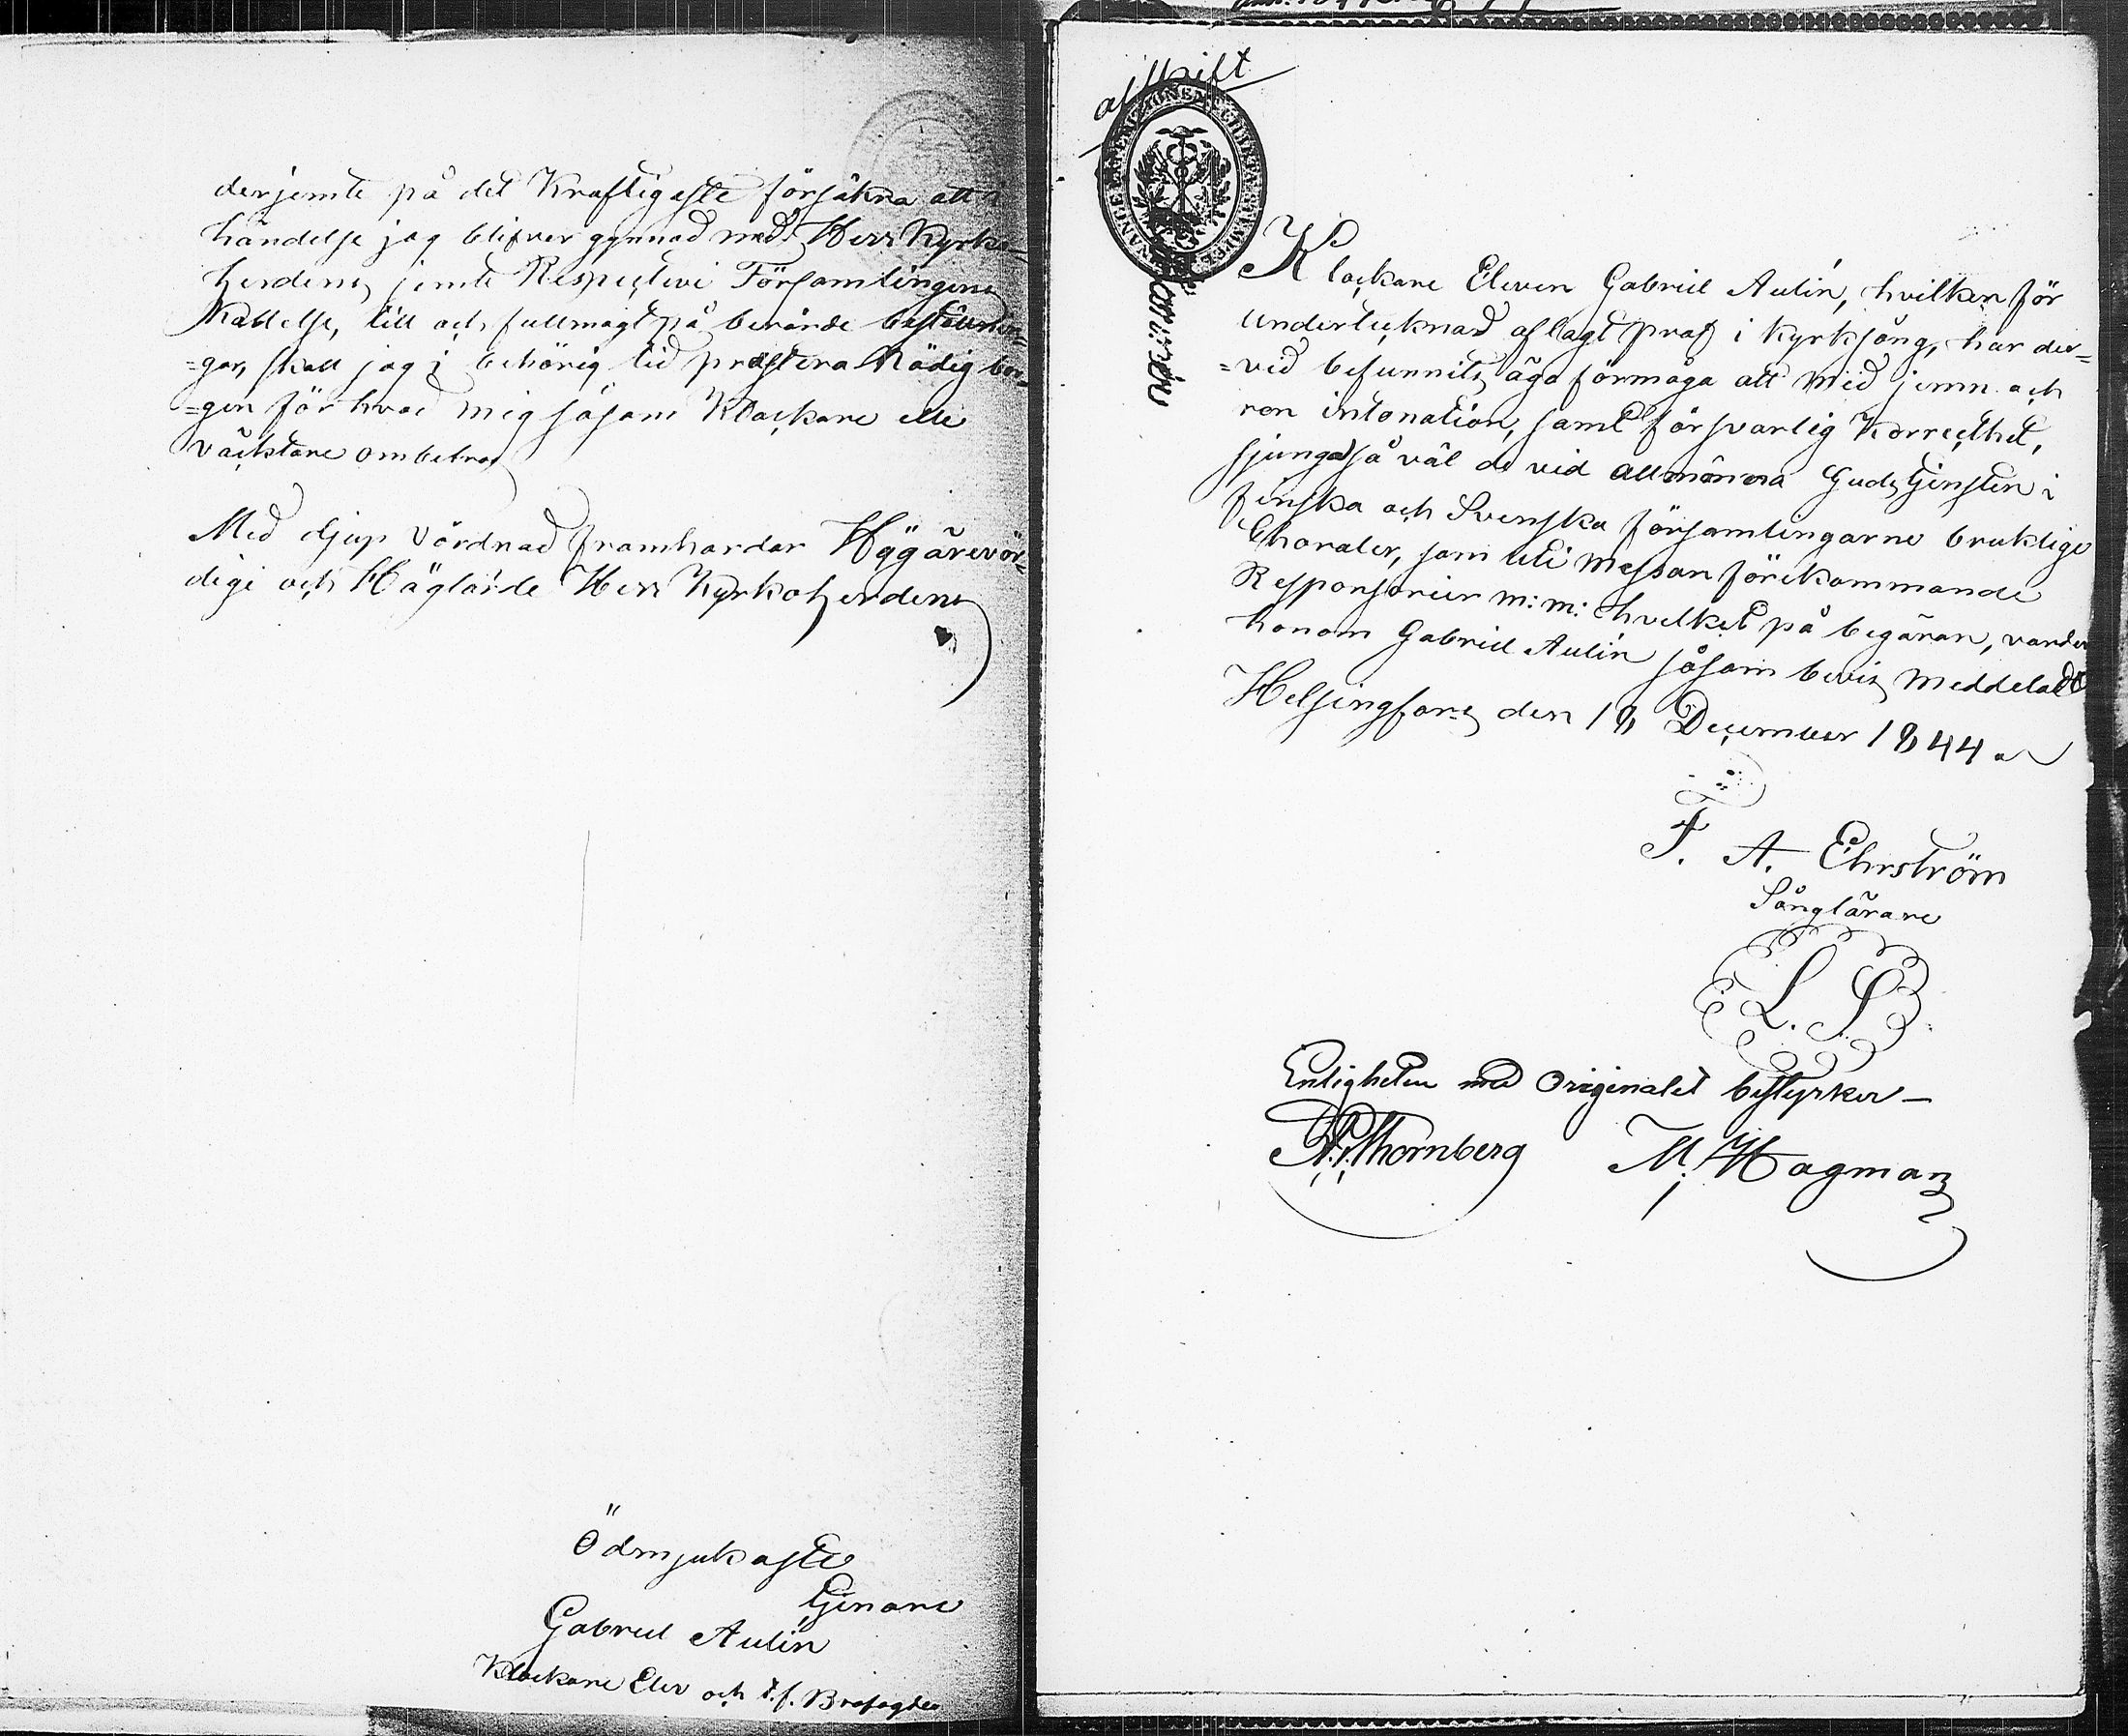 derjemte på det Kraftigaste försäkra att i
händelse jag blifver gynnad med Herr Kyrko-
herdens jemte Respective Församlingens
Kallelse, till och fullmagt på berörde beställnin=
=gar, skall jag i behörig tid prestera Nödig bor=
=gen för hvad mig såsom Klockare elle
väcktare ombetros
Med djup Vördnad framhardar Högärevör=
dige och Höglärde Herr Kyrkoherdens
Ödmjukaste
Tjenare
Gabriel Aulin
Klockare Elev och t.f.
afskrift
Klockare Eleven Gabriel Aulin, hvilken för
undertecknad aflagt prof i Kyrksång, har der=
=vid befunnits äga förmåga att med jemn och
ren intonation, samt försvarlig Korrecthet,
sjunga så väl de vid allmänna Gudstjensten i
finska och Svenska församlingarne bruklige
Choraler, som uti messan förekommande
Responsorier m: m: hvilket på begäran, varder
honom Gabriel Aulin såsom bevis meddeladt
Helsingfors den 18 December 1844
F. A. Ehrström
Sånglärare
L. S.
Enligheten med Originalet bestyrker
Thornberg M: Hagman